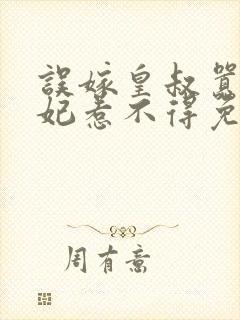 誤嫁皇叔囂
妃惹不得免
周有意